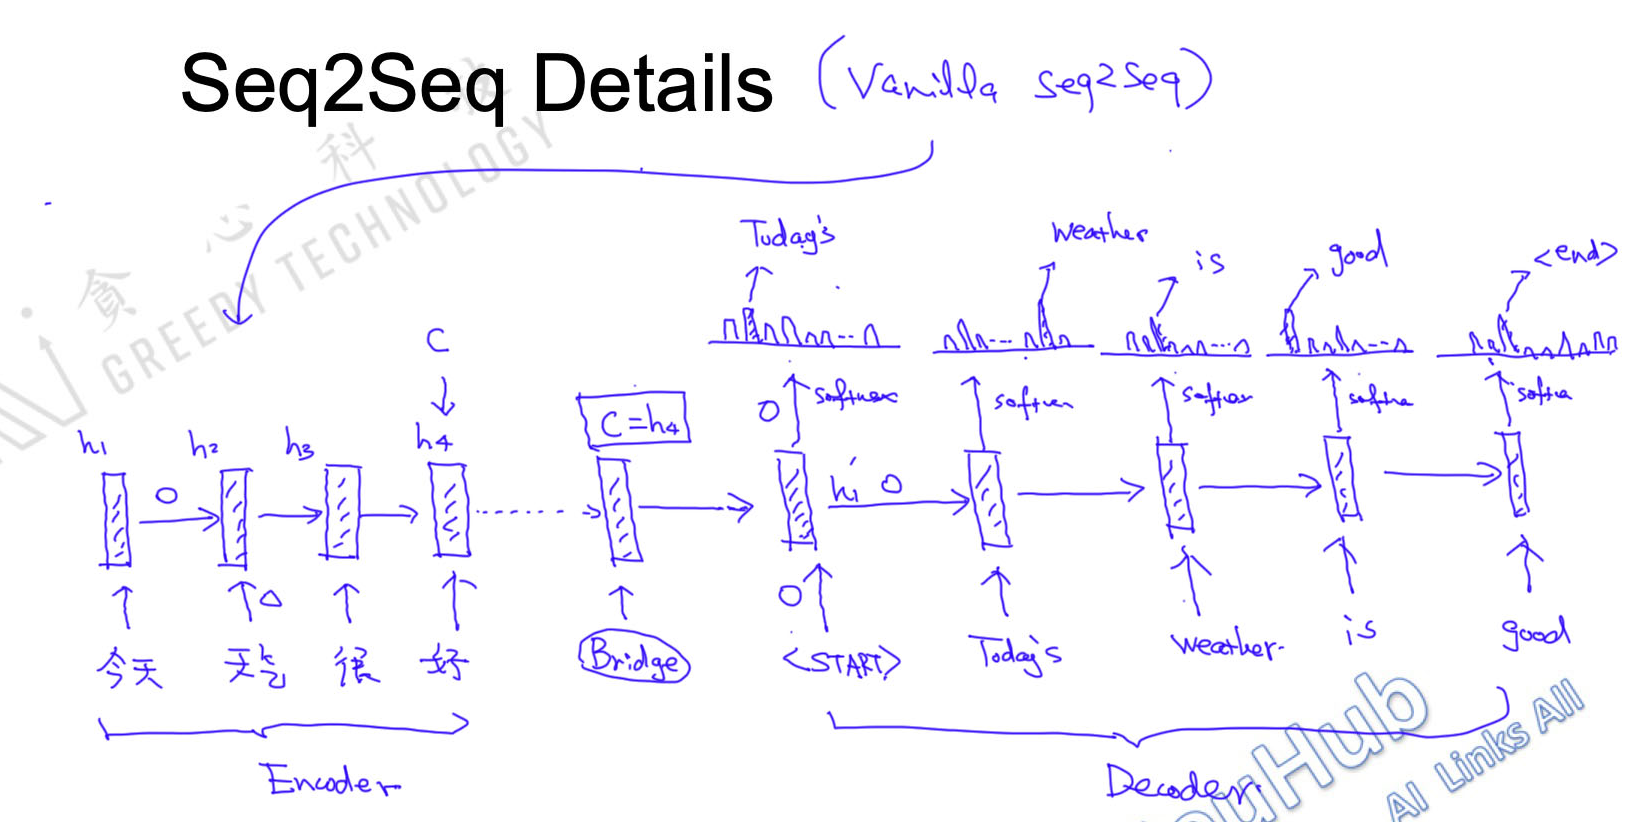 Seq2Seq Details (Vanilla Seq2Seq)
贪心科技
GREEDY TECHNOLOGY
Today's weather is good <end>
C
softmax
C=h4
h1 h2 h3 h4
h1'
今天 天气 很 好 Bridge <START> Today's weather. is good
Encoder Decoder
AI Links All